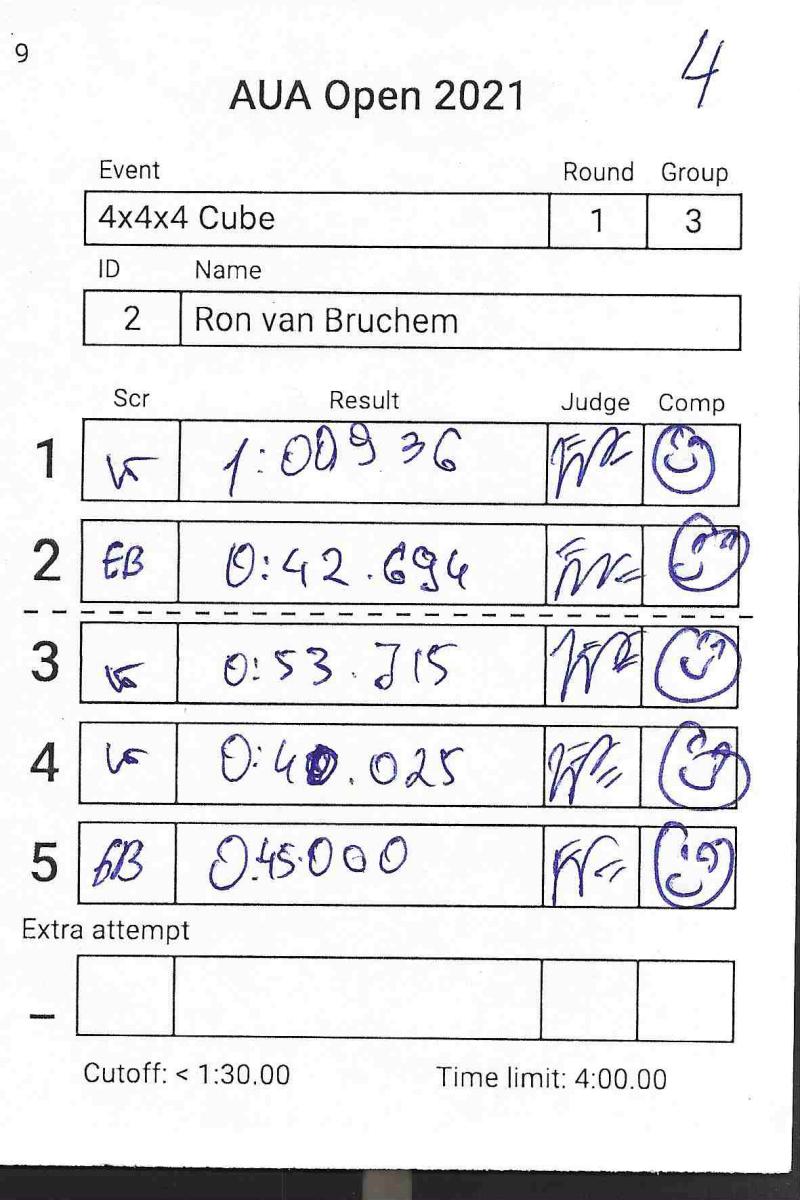 9
4
AUA Open 2021
Event Round Group
4x4x4 Cube 1 3
ID Name
2 Ron van Bruchem
Scr Result Judge Comp
1 1:00936
2 EB 0:42.694
3 0:53.715
4 0:40.025
5 BB 0:45.000
Extra attempt
–
Cutoff: < 1:30.00 Time limit: 4:00.00